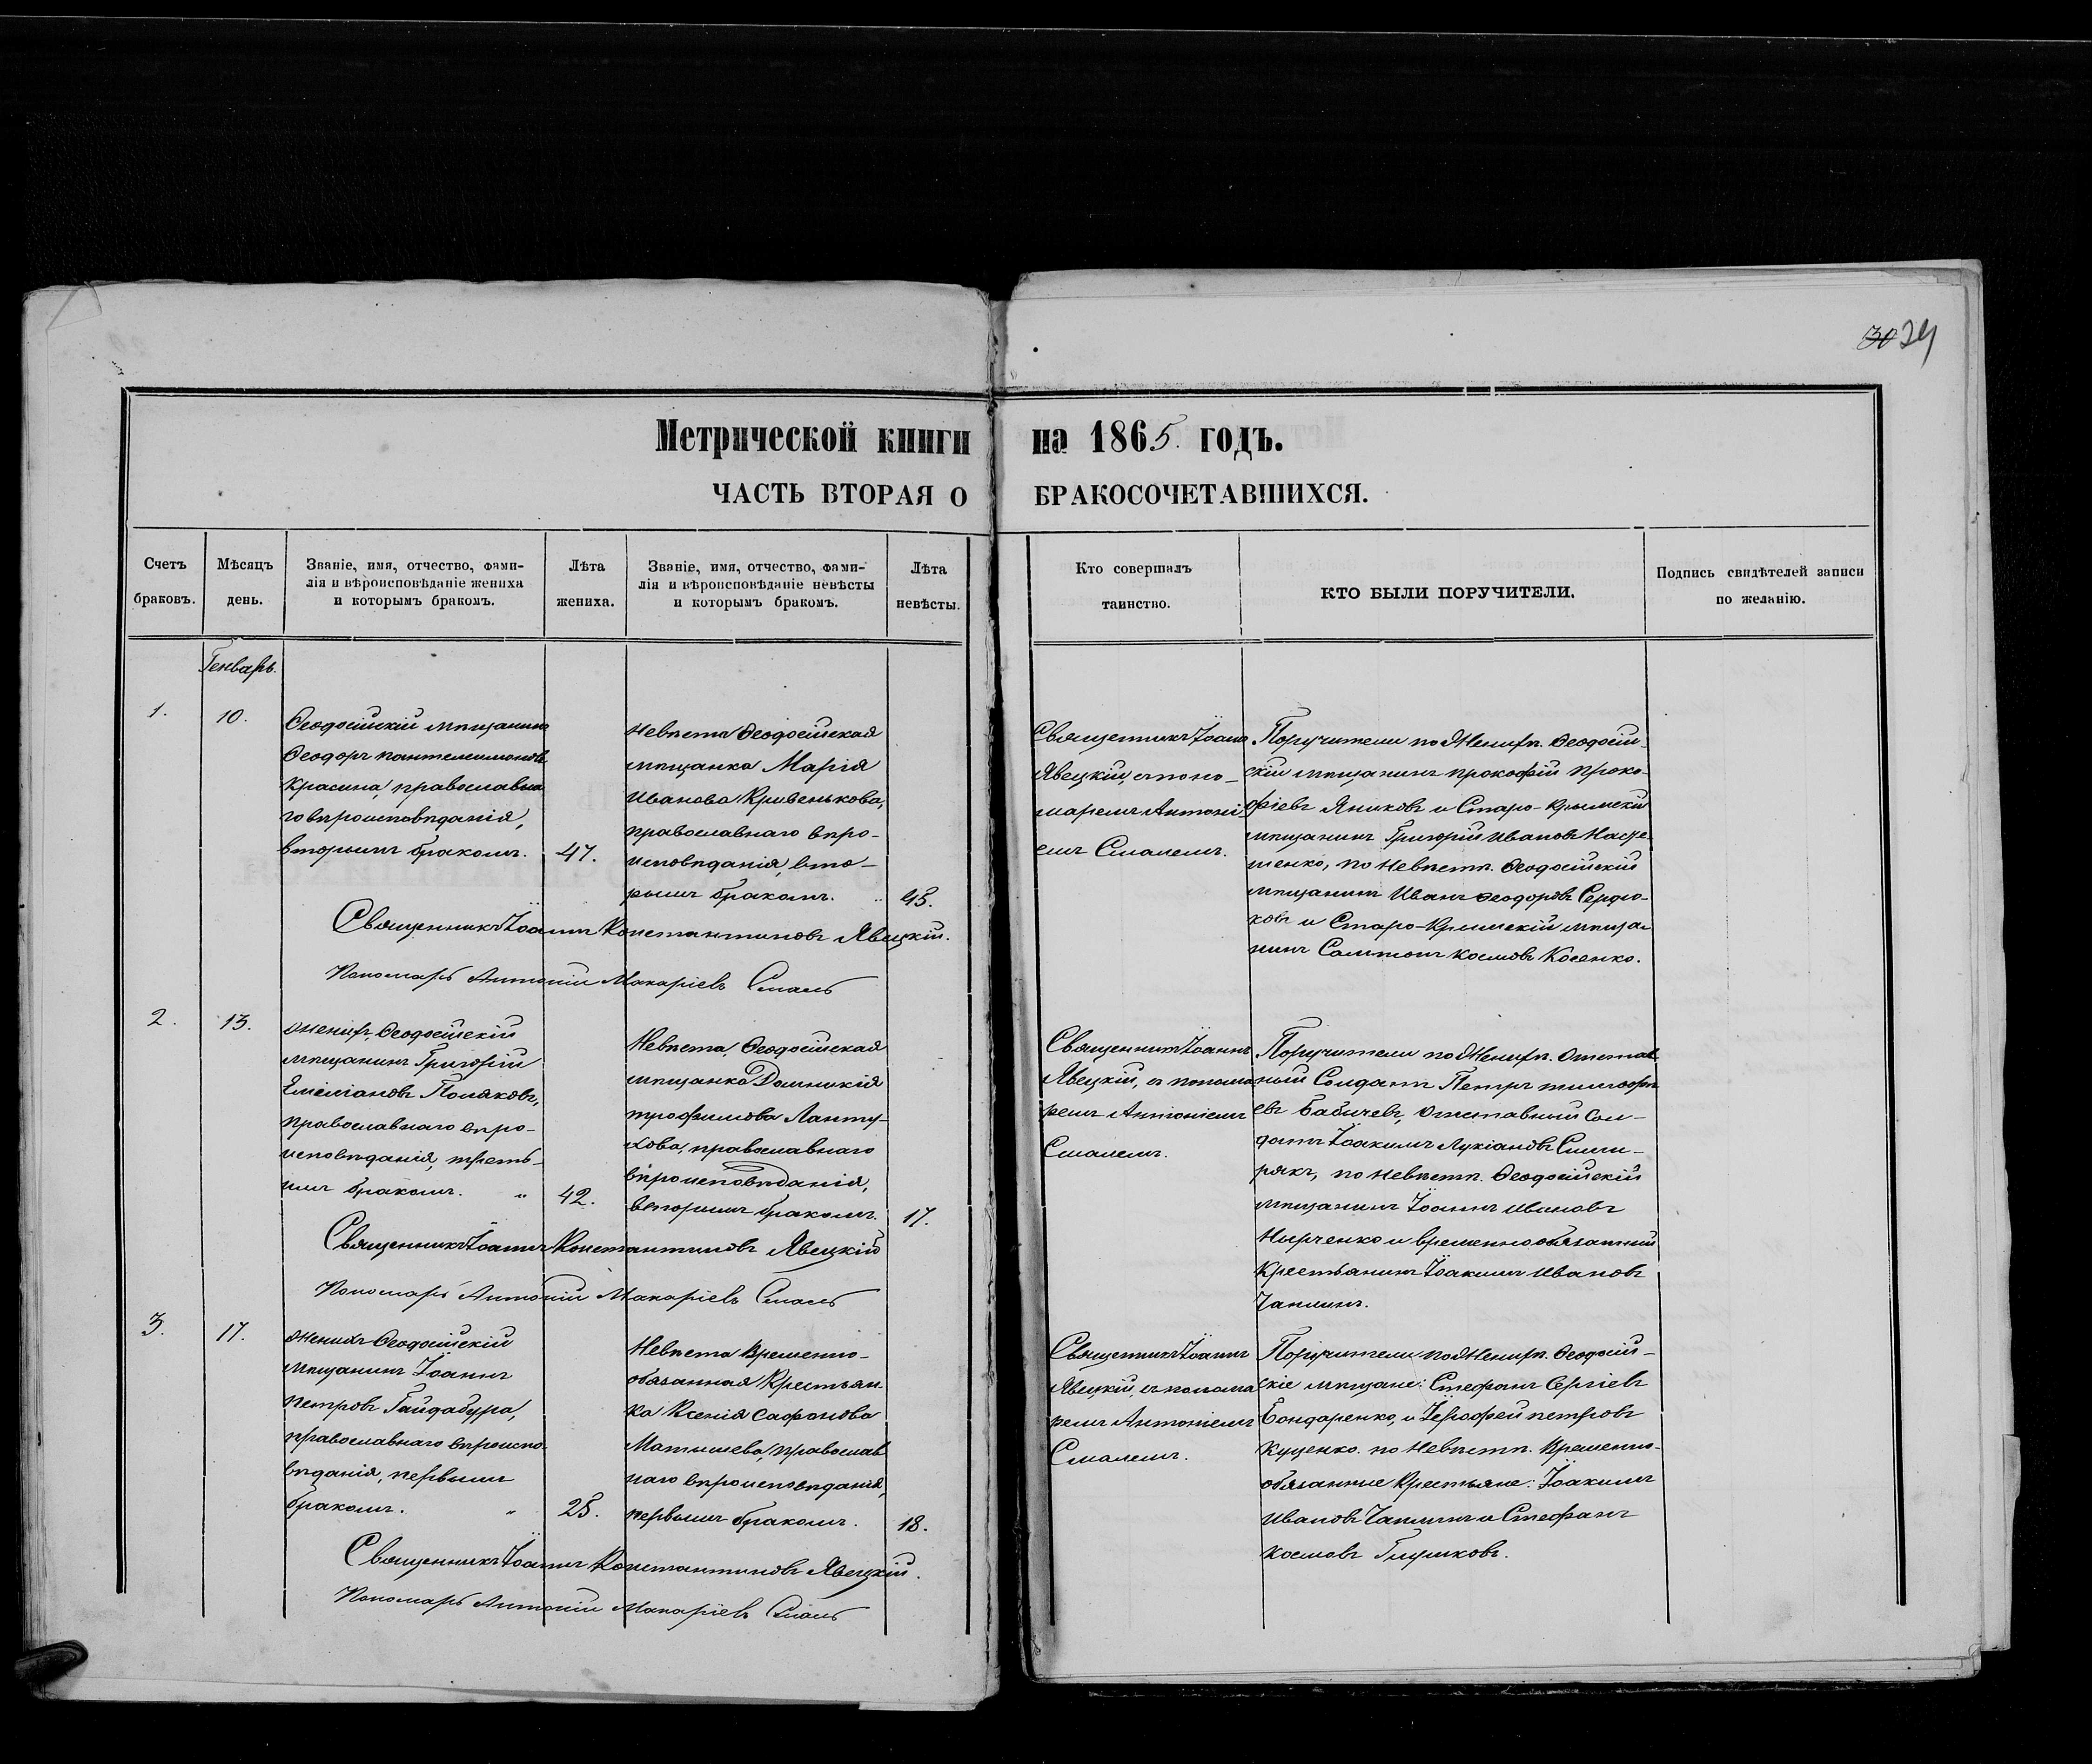 30 34
Метрической книги на 1865. годъ.
ЧАСТЬ ВТОРАЯ О БРАКОСОЧЕТАВШИХСЯ.
Счетъ браковъ.
Мѣсяцъ день.
Званіе, имя, отчество, фами-
лія и вѣроисповѣданіе жениха
и которымъ бракомъ.
Лѣта жениха.
Званіе, имя, отчество, фами-
лія и вѣроисповѣданіе невѣсты
и которымъ бракомъ.
Лѣта невѣсты.
Кто совершалъ
таинство.
КТО БЫЛИ ПОРУЧИТЕЛИ.
Подпись свидѣтелей записи
по желанію.
Генварь.
1.
10.
Ѳеодосійскій мѣщанинъ
Ѳеодоръ пантелеимоновъ
Красина, православна
го вѣроисповѣданія,
вторымъ бракомъ.
47.
Невѣста Ѳеодосійская
мѣщанка Марія
Иванова Кривенькова,
православнаго вѣро-
исповѣданія, вто-
рымъ бракомъ.
45.
Священникъ Іоаннъ
Явецкій, съ поно-
маремъ Антоні-
емъ Смалемъ.
Поручители по Женихѣ. Ѳеодосій-
скій мѣщанинъ прокофій Проко-
фіевъ Яниковъ и Старо-Крымскій
мѣщанинъ Григорій Ивановъ
по Невѣстѣ. Ѳеодосійскій
мѣщанинъ Иванъ Ѳеодоровъ Сердю-
ковъ и Старо-Крымскій мѣща-
нинъ космовъ Косенко.
Священникъ Іоаннъ Константиновъ Явецкій.
Пономарь Антоній Макаріевъ Смаль
2.
13.
Женихъ, Ѳеодосійскій
мѣщанинъ Григорій
Емеліановъ Поляковъ,
православнаго вѣро-
исповѣданія, треть-
имъ бракомъ. "
42.
Невѣста, Ѳеодосійская
мѣщанка Домникія
трофимова Ланту-
хова, православнаго
вѣроисповѣданія,
вторымъ бракомъ.
17.
Священникъ Іоаннъ
Явецкій, съ понома
ремъ Антоніемъ
Смалемъ.
Поручители по Женихѣ. Отстав
ной Солдатъ Петръ тимофѣ
евъ Бабичевъ, Отставный Сол-
датъ Іоакимъ Лукіановъ
по Невѣстѣ. Ѳеодосійскій
мѣщанинъ Іоаннъ Ивановъ
Нирченко и временнообязанный
Крестьянинъ Іоакимъ Ивановъ
Чаплинъ.
Священникъ Іоаннъ Константиновъ Явецкій
Пономарь Антоній Макаріевъ Смаль
3.
17.
Женихъ Ѳеодосійскій
мѣщанинъ Іоаннъ
петровъ Гайдабура,
православнаго вѣроиспо-
вѣданія, первымъ
бракомъ. "
25.
Невѣста Временно-
обязанная Крестьян-
ка Ксенія сафонова
Матышева, православ
наго вѣроисповѣданія,
первымъ бракомъ.
18.
Священникъ Іоаннъ
Явецкій, съ понома
ремъ Антоніемъ
Смалемъ.
Поручители по Женихѣ. Ѳеодосій-
скіе мѣщане: Стефанъ Сергіевъ
Бондаренко, и Іерофей петровъ
Куценко. по Невѣстѣ. Временно-
обязанные Крестьяне: Іоакимъ
Ивановъ Чаплинъ и Стефанъ
космовъ Глушковъ.
Священникъ Іоаннъ Константиновъ Явецкій.
Пономарь Антоній Макаріевъ Смаль